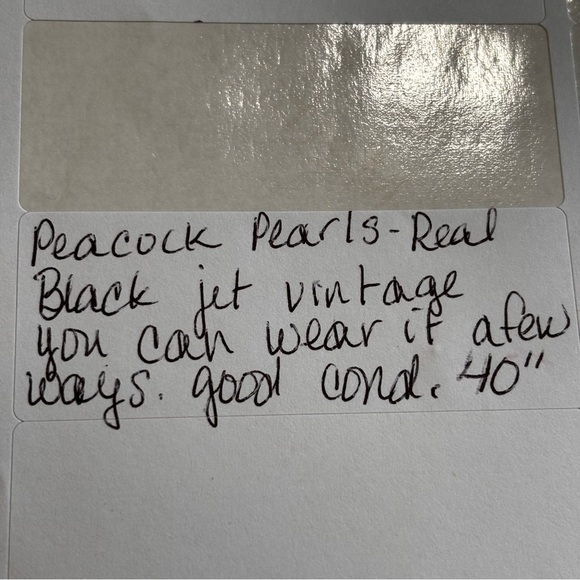 Peacock Pearls-Real
Black jet vintage
you can wear it a few
ways. good cond. 40"